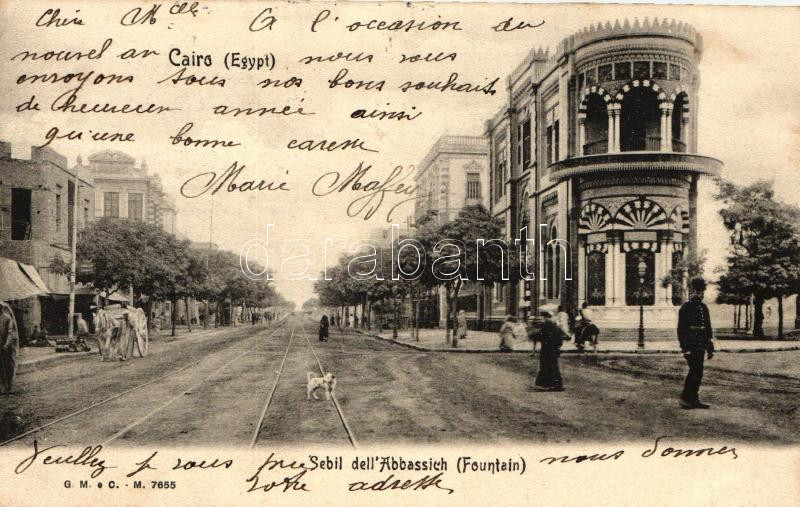 Chère Mlle A l'occasion du
nouvel an nous vous
Cairo (Egypt)
envoyons tous nos bons souhaits
de heureuse année ainsi
qu'une bonne caresse
Marie Maffey
darabanth.com
Sebil dell'Abbassieh (Fountain)
G. M. e C. - M. 7655
Veuillez je vous prie nous donner
votre adresse